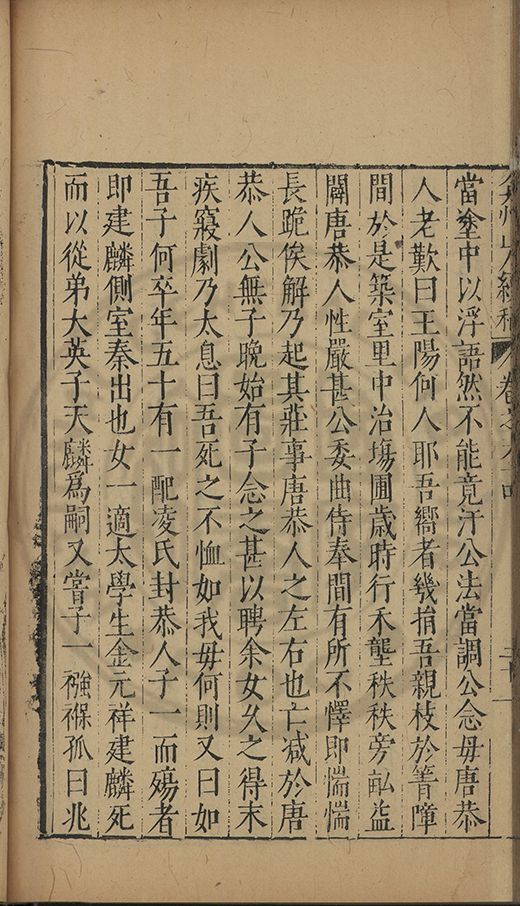 卷之
當塗中以浮語然不能竟汙公法當調公念毋唐恭
人老歎曰王陽何人耶吾嚮者幾捐吾親枝於箐障
間於是築室里中治塲圃歲時行禾壟秩秩旁畝盗
闢唐恭人性嚴甚公委曲侍奉間有所不懌即惴惴
長跪俟解乃起其莊事唐恭人之左右也亡减於唐
恭人公無子晚始有子念之甚以聘余女久之得末
疾寖劇乃太息曰吾死之不恤如我毋何則又曰如
吾子何卒年五十有一配凌氏封恭人子一而殤者
即建麟側室秦出也女一適太學生金元祥建麟死
而以從弟大英子天麟爲嗣又嘗子一襁褓孤曰兆